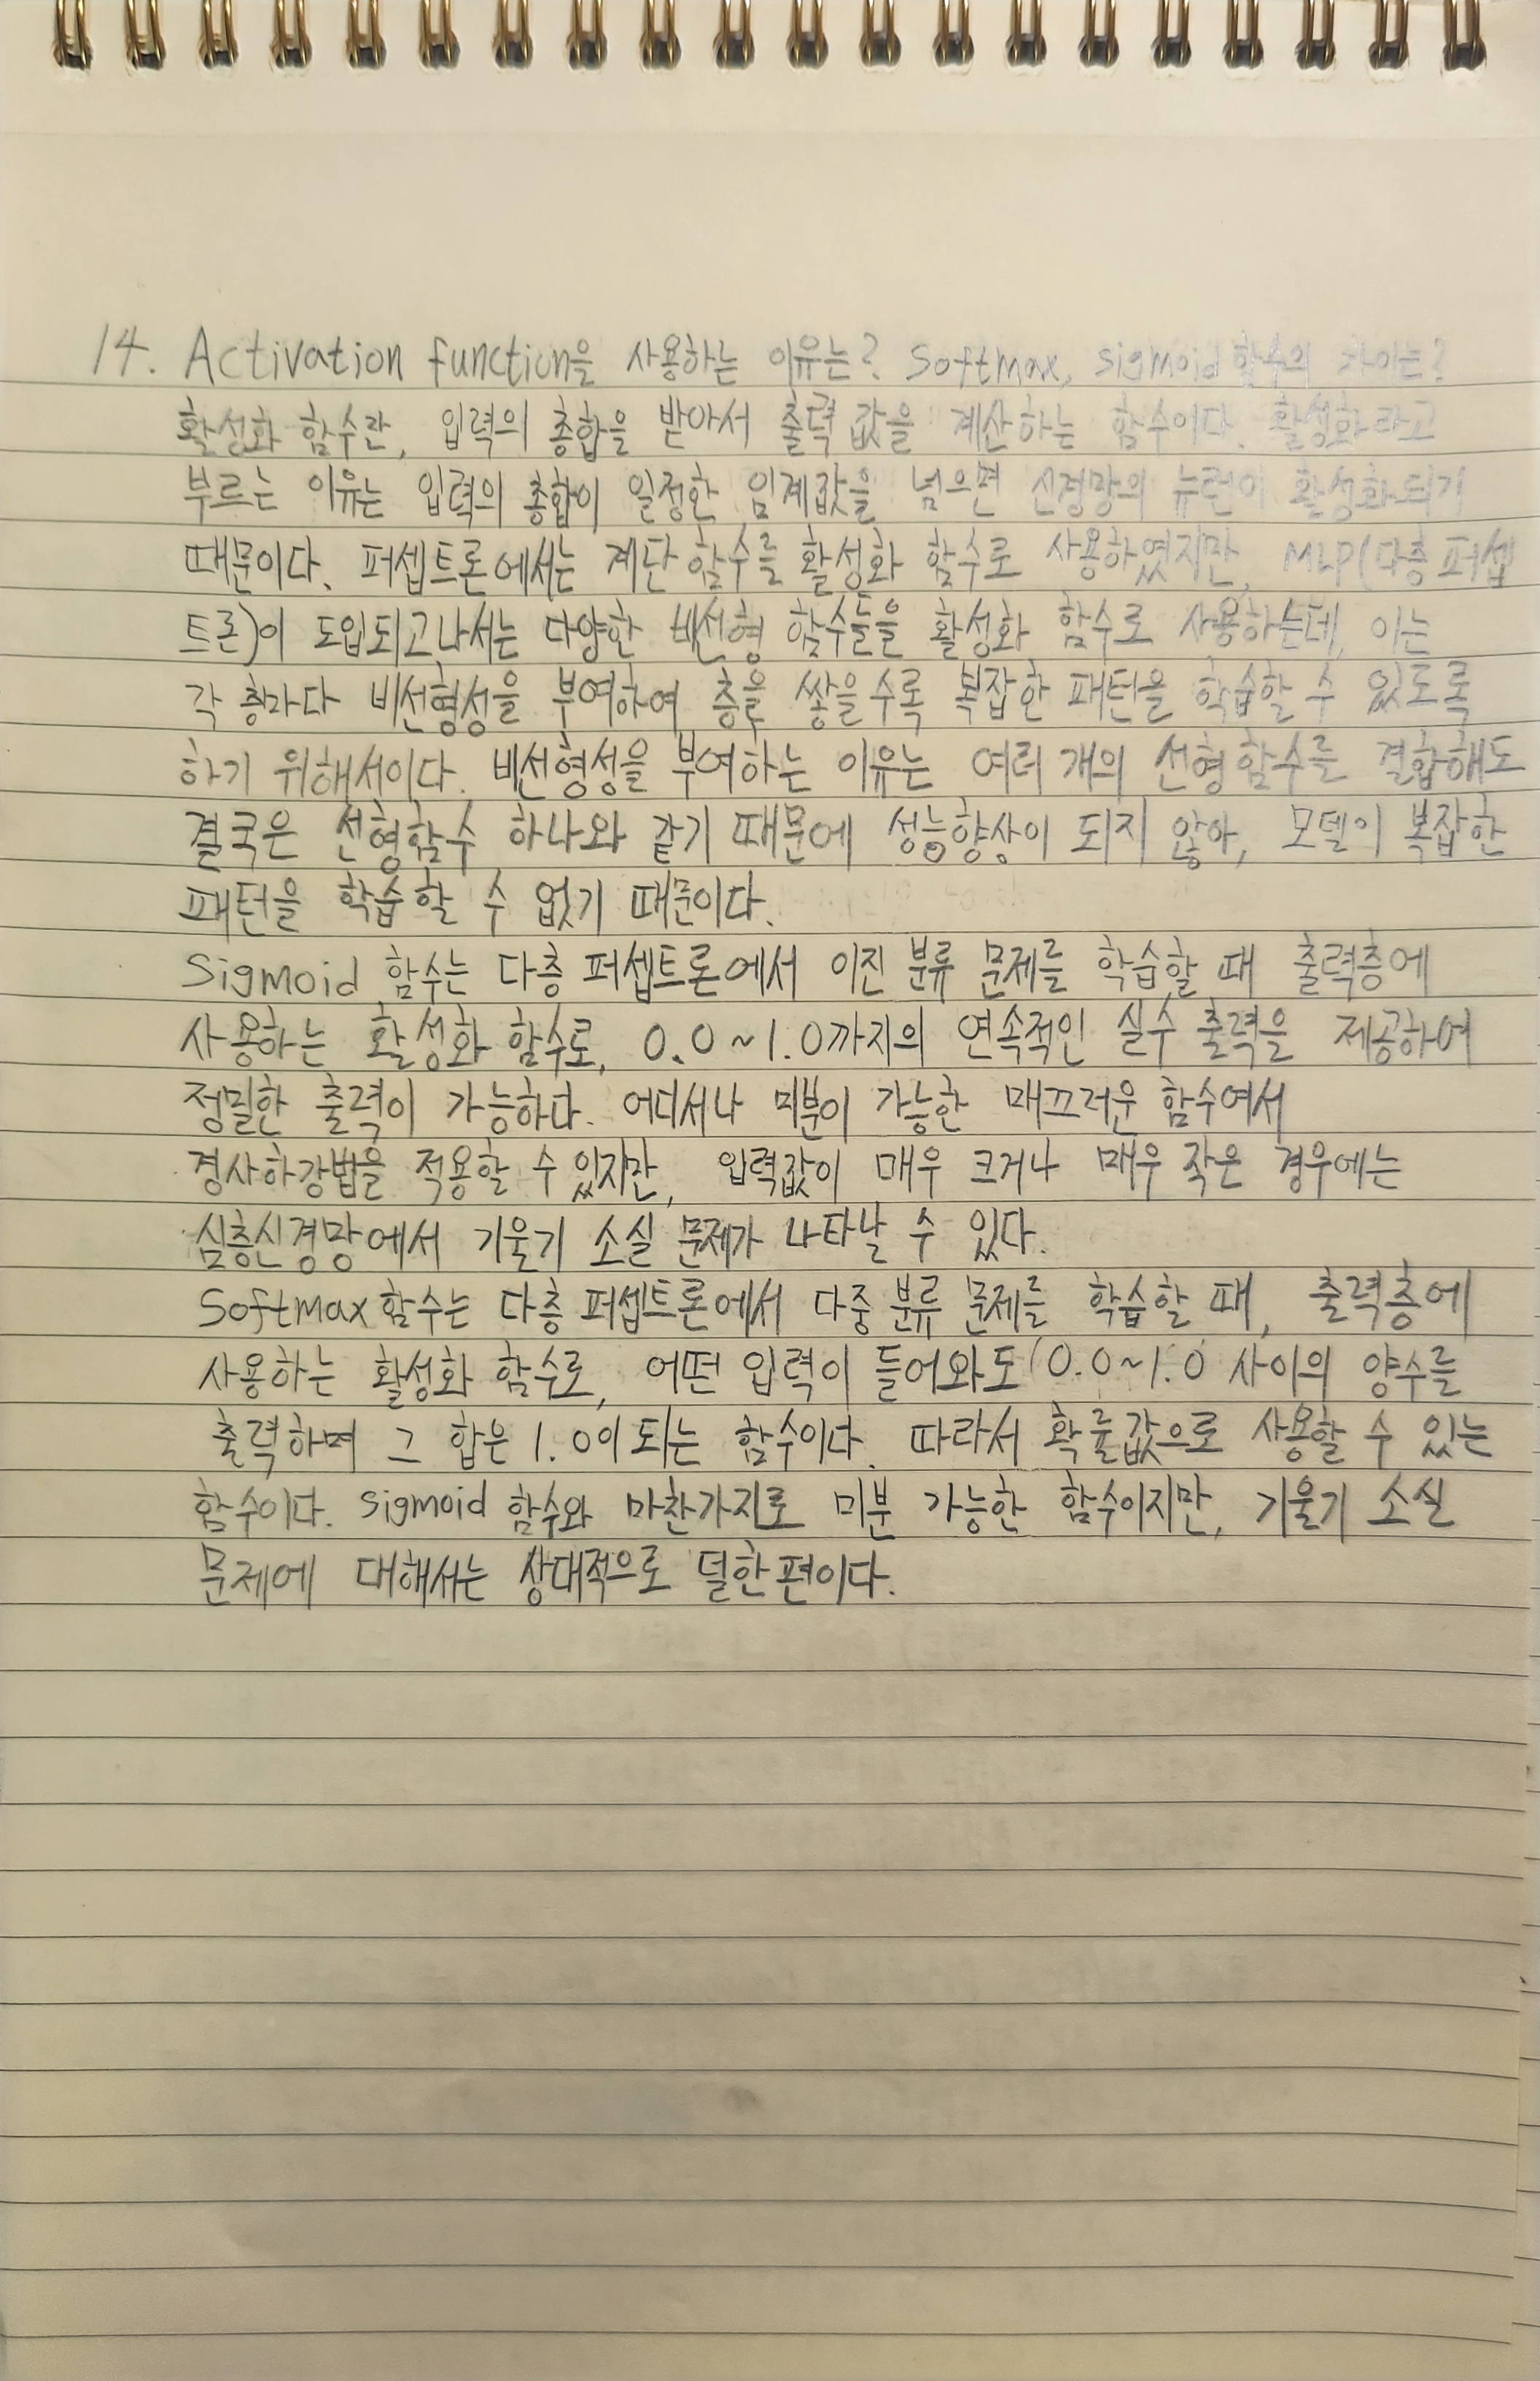 14. Activation function을 사용하는 이유는? Softmax, sigmoid 함수의 차이는?
활성화 함수란, 입력의 총합을 받아서 출력 값을 계산하는 함수이다. 활성화라고
부르는 이유는 입력의 총합이 일정한 임계값을 넘으면 신경망의 뉴런이 활성화되기
때문이다. 퍼셉트론에서는 계단 함수를 활성화 함수로 사용하였지만, MLP(다층 퍼셉
트론)이 도입되고나서는 다양한 비선형 함수들을 활성화 함수로 사용하는데, 이는
각 층마다 비선형성을 부여하여 층을 쌓을수록 복잡한 패턴을 학습할 수 있도록
하기 위해서이다. 비선형성을 부여하는 이유는 여러 개의 선형함수를 결합해도
결국은 선형함수 하나와 같기 때문에 성능향상이 되지 않아, 모델이 복잡한
패턴을 학습할 수 없기 때문이다.
Sigmoid 함수는 다층 퍼셉트론에서 이진 분류 문제를 학습할 때 출력층에
사용하는 활성화 함수로, 0.0~1.0까지의 연속적인 실수 출력을 제공하여
정밀한 출력이 가능하다. 어디서나 미분이 가능한 매끄러운 함수여서
경사하강법을 적용할 수 있지만, 입력값이 매우 크거나 매우 작은 경우에는
심층신경망에서 기울기 소실 문제가 나타날 수 있다.
Softmax 함수는 다층 퍼셉트론에서 다중 분류 문제를 학습할 때, 출력층에
사용하는 활성화 함수로, 어떤 입력이 들어와도 0.0~1.0 사이의 양수를
출력하며 그 합은 1.0이 되는 함수이다. 따라서 확률값으로 사용할 수 있는
함수이다. sigmoid 함수와 마찬가지로 미분 가능한 함수이지만, 기울기 소실
문제에 대해서는 상대적으로 덜한 편이다.